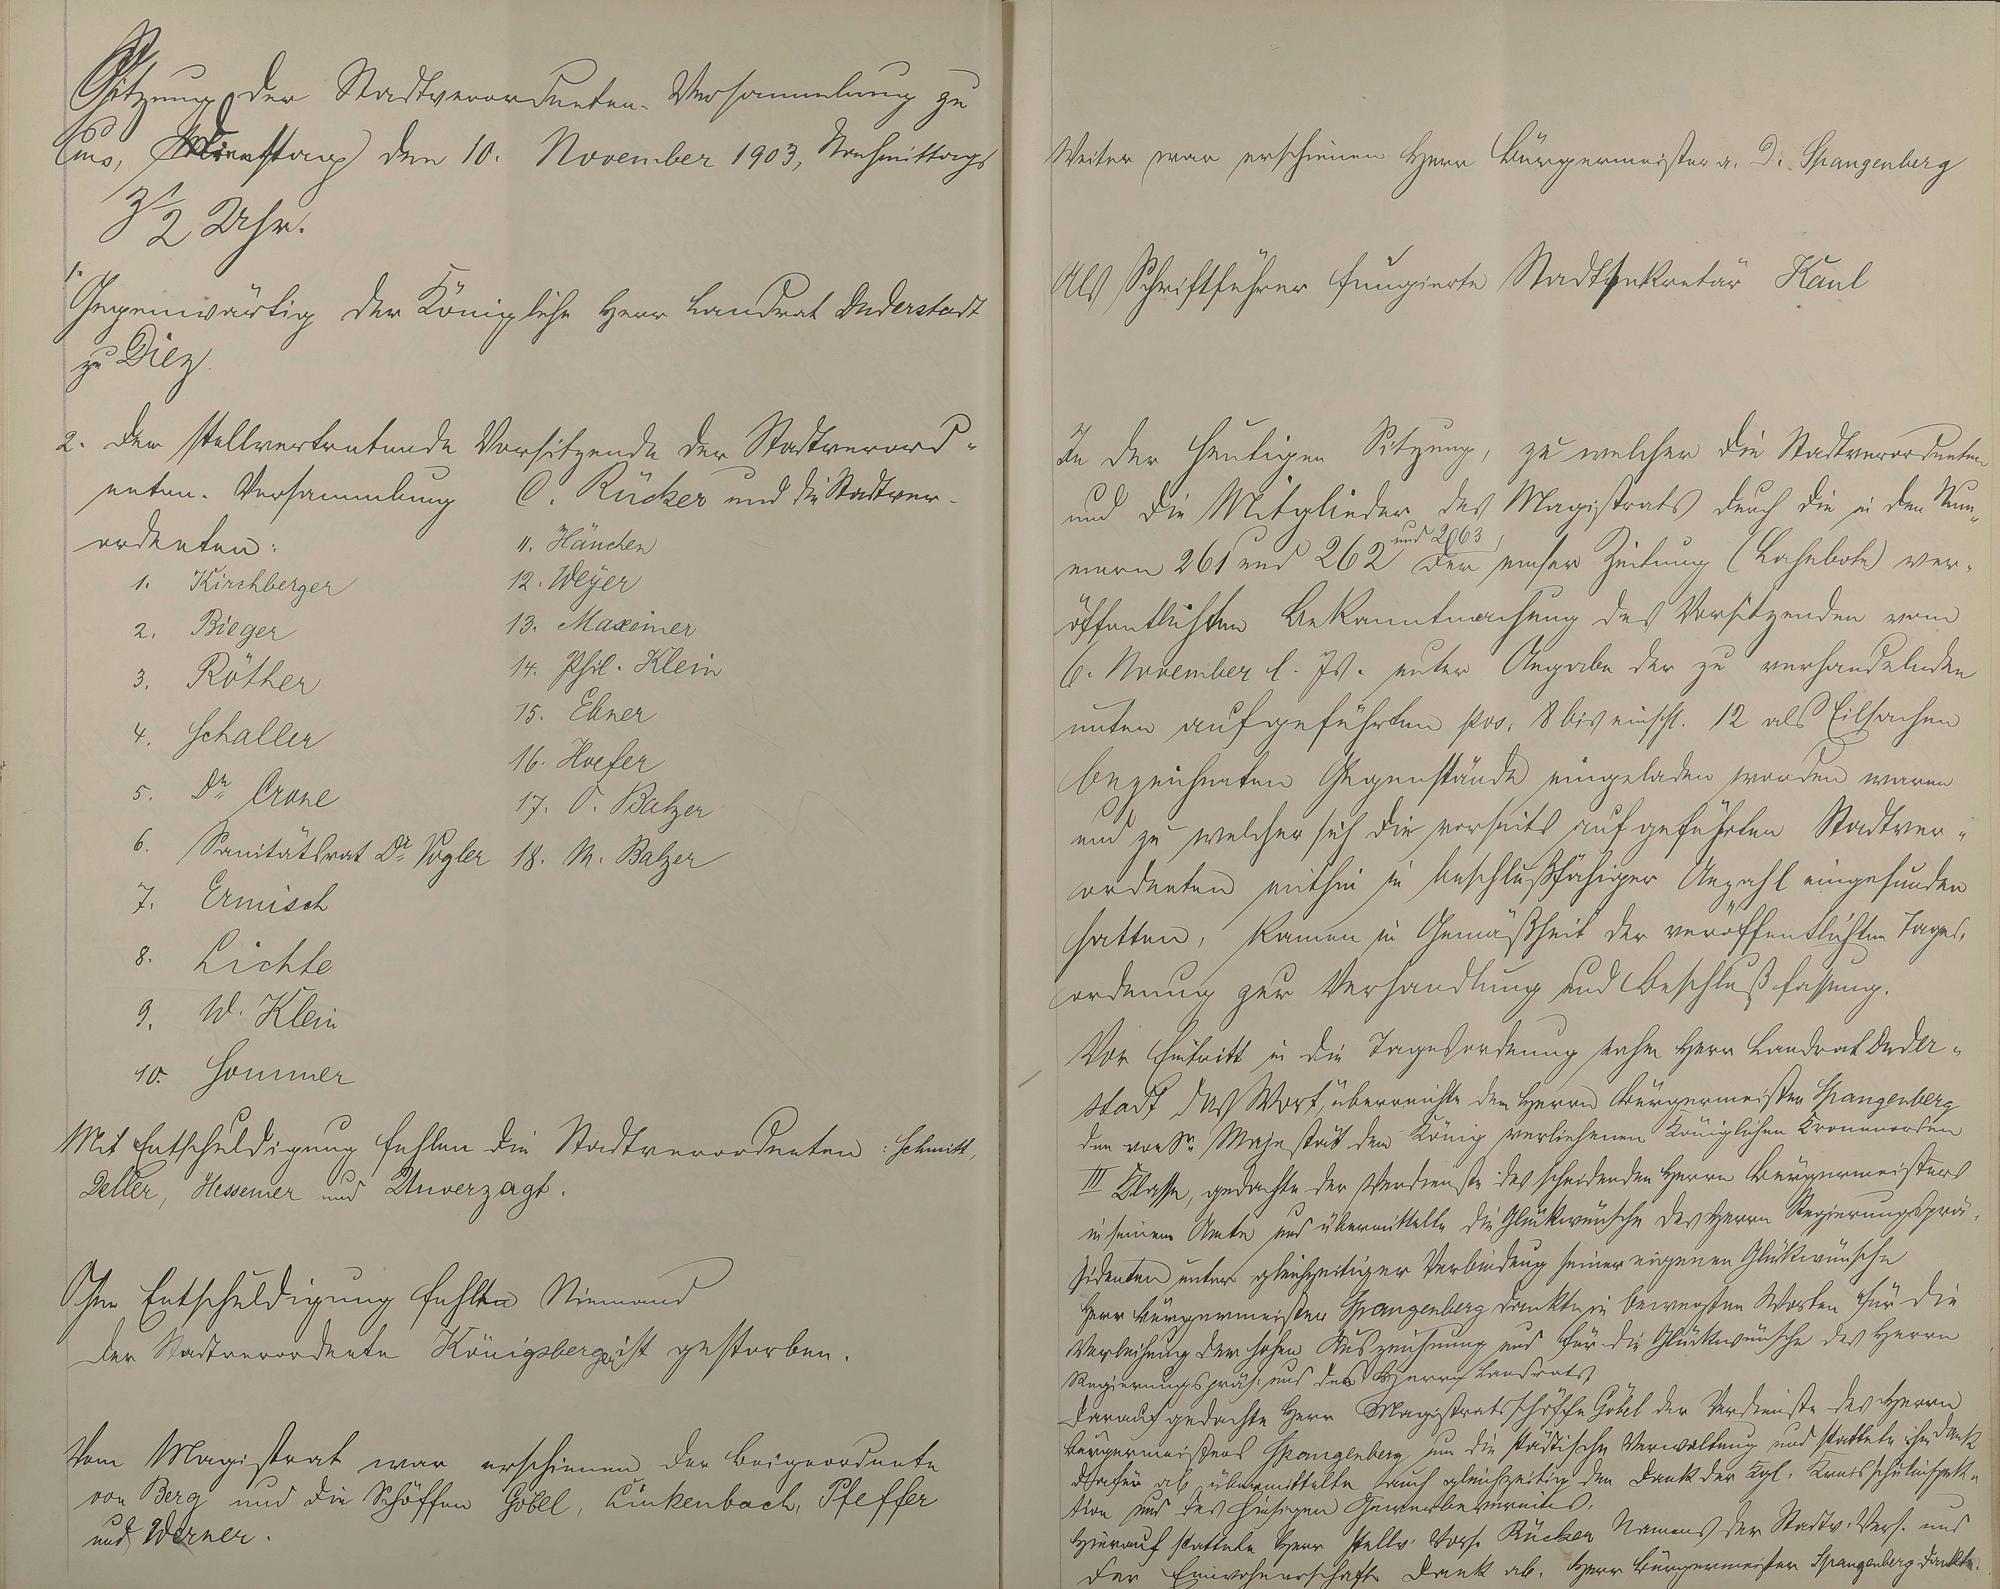 Sitzung der Stadtverordneten-Versammlung zu
Ems, Dienstag den 10. November 1903, Nachmittags
3 1/2 Uhr.
1. Gegenwärtig der Königliche Herr Landrat Duderstadt
zu Diez.
2. der stellvertretende Vorsitzende der Stadtverord-
neten-Versammlung C. Rücker und die Stadtver-
ordneten:
1. Kirchberger
2. Bieger
3. Röther
4. Schaller
5. Dr Crone
6. Sanitätsrat Dr. Vogler
7. Ermisch
8. Lichte
9. W. Klein
10. Sommer
11. Hänchen
12. Weyer
13. Maxeiner
14. Phil. Klein
15. Ebner
16. Hoefer
17. O. Balzer
18. M. Balzer
Mit Entschuldigung fehlen die Stadtverordneten: Schmitt,
Deller, Hessemer und Unverzagt.
Ohne Entschuldigung fehlten Niemand
Der Stadtverordnete Königsberger ist gestorben.
Vom Magistrat war erschienen der Beigeordnete
von Berg und die Schöffen Göbel, Linkenbach, Pfeffer
und Werner.
Weiter war erschienen Herr Bürgermeister a. D. Spangenberg
Als Schriftführer fungierte Stadtsekretär Kaul
In der heutigen Sitzung, zu welcher die Stadtverordneten
und die Mitglieder des Magistrats durch die in den Num-
mern 261 und 262 und 263 der Emser Zeitung (Lahnbote) ver-
öffentlichten Bekanntmachung des Vorsitzenden vom
6. November l. Js. unter Angabe der zu verhandelnden
unten aufgeführten pos. 8 bis einschl. 12 als Eilsachen
bezeichneten Gegenstände eingeladen worden waren
und zu welcher sich die vorseits aufgeführten Stadtver-
ordneten mithin in beschlußfähiger Anzahl eingefunden
hatten, kamen in Gemäßheit der veröffentlichten Tages-
ordnung zur Verhandlung und Beschlußfassung.
Vor Eintritt in die Tagesordnung nahm Herr Landrat Duder-
stadt das Wort, überreichte dem Herrn Bürgermeister Spangenberg
den von Sr. Majestät dem König verliehenen Königlichen Kronenorden
III Klasse, gedachte der Verdienste des scheidenden Herrn Bürgermeisters
in seinem Amte und übermittelte die Glückwünsche des Herrn Regierungsprä-
sidenten unter gleichzeitiger Verbindung seiner eigenen Glückwünsche
Herr Bürgermeister Spangenberg dankte in bewegten Worten für die
Verleihung der hohen Auszeichnung und für die Glückwünsche des Herrn
Regierungspräs. und des Herrn Landrats
Darauf gedachte Herr Magistratsschöffe Göbel der Verdienste des Herrn
Bürgermeisters Spangenberg um die städtische Verwaltung und stattete ihm Dank
dafür ab, übermittelte auch gleichzeitig den Dank der Kgl. Kreisschulinspek-
tion und des hiesigen Gewerbevereins.
Hierauf stattete Herr stellv. Vors. Rücker Namens der Stadtv. Vers. und
der Einwohnerschaft Dank ab. Herr Bürgermeister Spangenberg dankte.